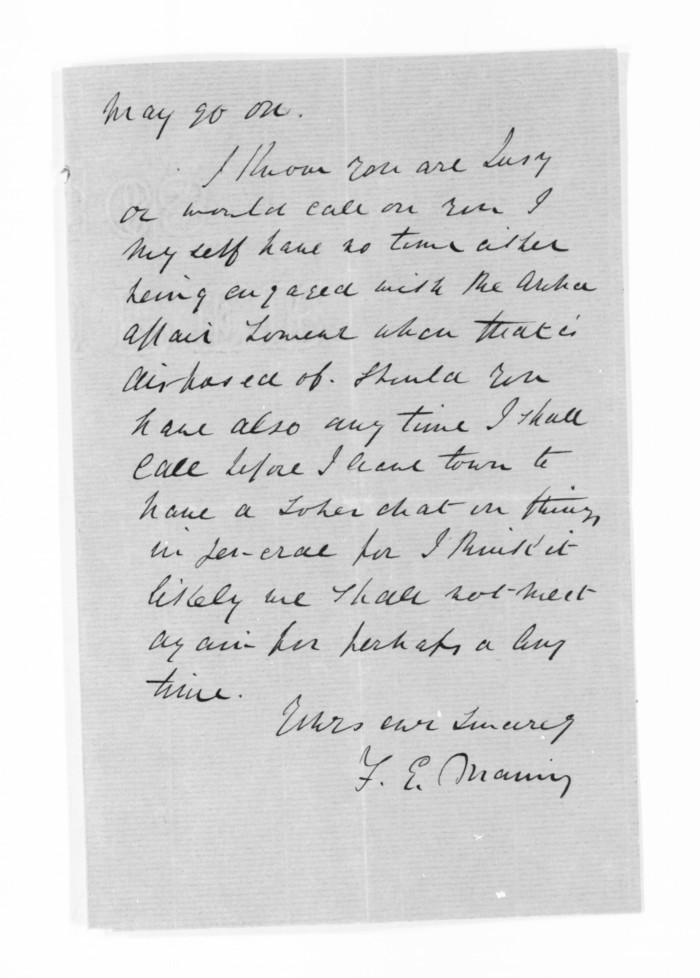 may go on.
I know you are busy
or would call on you I
myself have no time either
being engaged with the
affair when that is
disposed of. Should you
have also any time I shall
call before I leave town to
have a sober chat on things
in gen-eral for I think it
likely we shall not meet
again for perhaps a long
time.
Yours ever sincerely
F. E. Maning